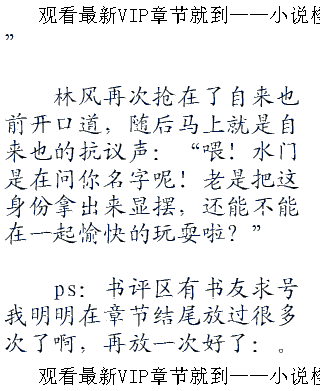 观看最新VIP章节就到——小说检
”
林风再次抢在了自来也
前开口道，随后马上就是自
来也的抗议声：“喂！水门
是在问你名字呢！老是把这
身份拿出来显摆，还能不能
在一起愉快的玩耍啦？”
ps：书评区有书友求号
我明明在章节结尾放过很多
次了啊，再放一次好了：。
观看最新VIP章节就到——小说检